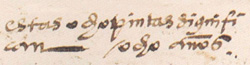 estas ocho pintas signifi
can ocho años